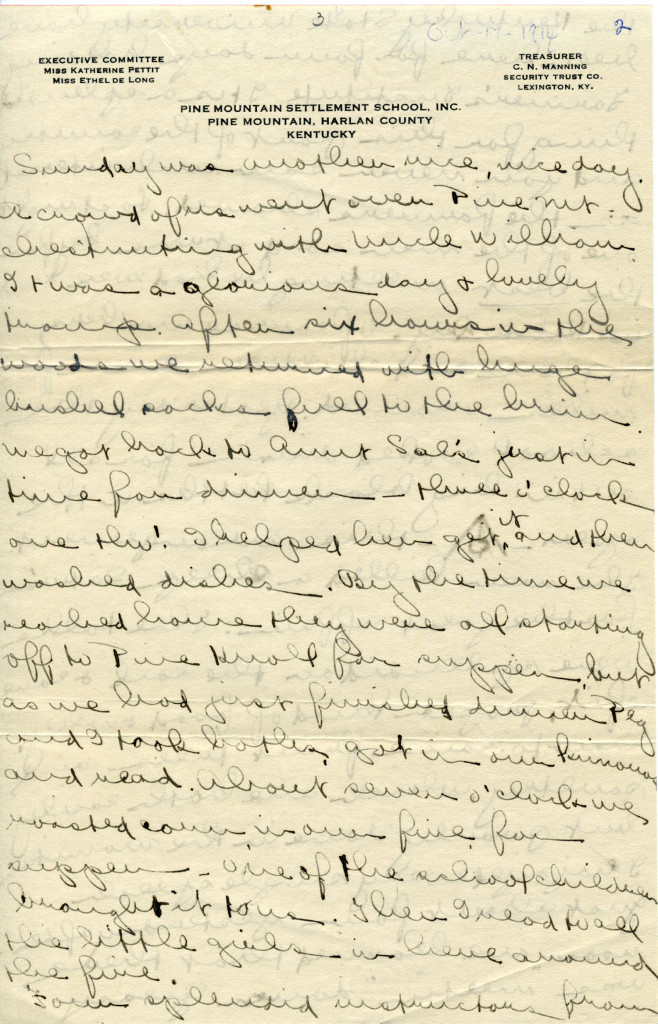 3
Oct-17-1914 2
EXECUTIVE COMMITTEE
MISS KATHERINE PETTIT
MISS ETHEL DE LONG
TREASURER
C. N. MANNING
SECURITY TRUST CO.
LEXINGTON, KY.
PINE MOUNTAIN SETTLEMENT SCHOOL, INC.
PINE MOUNTAIN, HARLAN COUNTY
KENTUCKY
Sunday was another nice, nice day.
A crowd of us went over Pine Mt.
chestnutting with Uncle William.
It was a glorious day & lovely
tramp. After six hours in the
woods we returned with huge
bushel sacks full to the brim.
We got back to Aunt Sal's just in
time for dinner - three o'clock
one tho'. I helped her get it, and then
washed dishes. By the time we
reached home they were all starting
off to Pine Knoll for supper, but
as we had just finished dinner Peg
and I took baths, got in our kimonas
and read. About seven o'clock we
roasted corn in our fire for
supper - One of the school children
brought it to us. Then I read to all
the little girls - in here around
the fire.
Four splendid instructors from